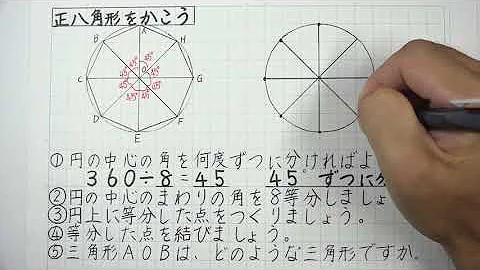 正八角形をかこう
A
B
H
45°
45°
45°
O
45°
C
G
45°
45°
45°
45°
D
F
E
①円の中心の角を何度ずつに分ければよ
360÷8=45 45°ずつに分
②円の中心のまわりの角を8等分しましょ
③円上に等分した点をつくりましょう。
④等分した点を結びましょう。
⑤三角形AOBは、どのような三角形ですか。